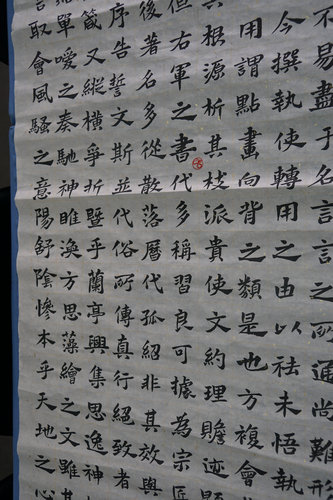 不易盡于名言言之所通尚難形
今撰執使轉用之由以祛未悟執
用謂點畫向背之類是也方複會
其根源析其枝派貴使文約理贍迹
但右軍之書代多稱習良可據為宗匠
後著名多從散落曆代孤紹非其效與
序告誓文斯並代俗所傳真行絕致者
箴又縱橫爭折暨乎蘭亭興集思逸神
單嗳之奏馳神睢渙方思藻繪之文雖其
取會風騷之意陽舒陰慘本乎天地之心